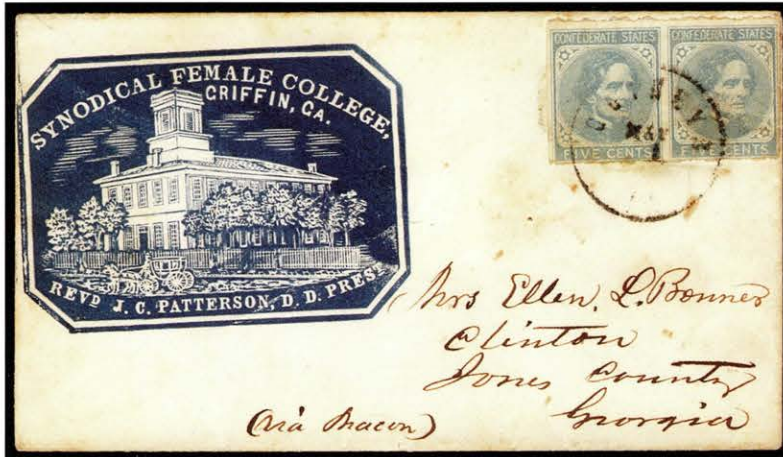 SYNODICAL FEMALE COLLEGE,
GRIFFIN, GA.
REVD J. C. PATTERSON, D. D. PREST
CONFEDERATE STATES
FIVE CENTS
CONFEDERATE STATES
FIVE CENTS
MAY
Mrs Ellen. L. Bonner
Clinton
Jones County
Georgia
(via Macon)